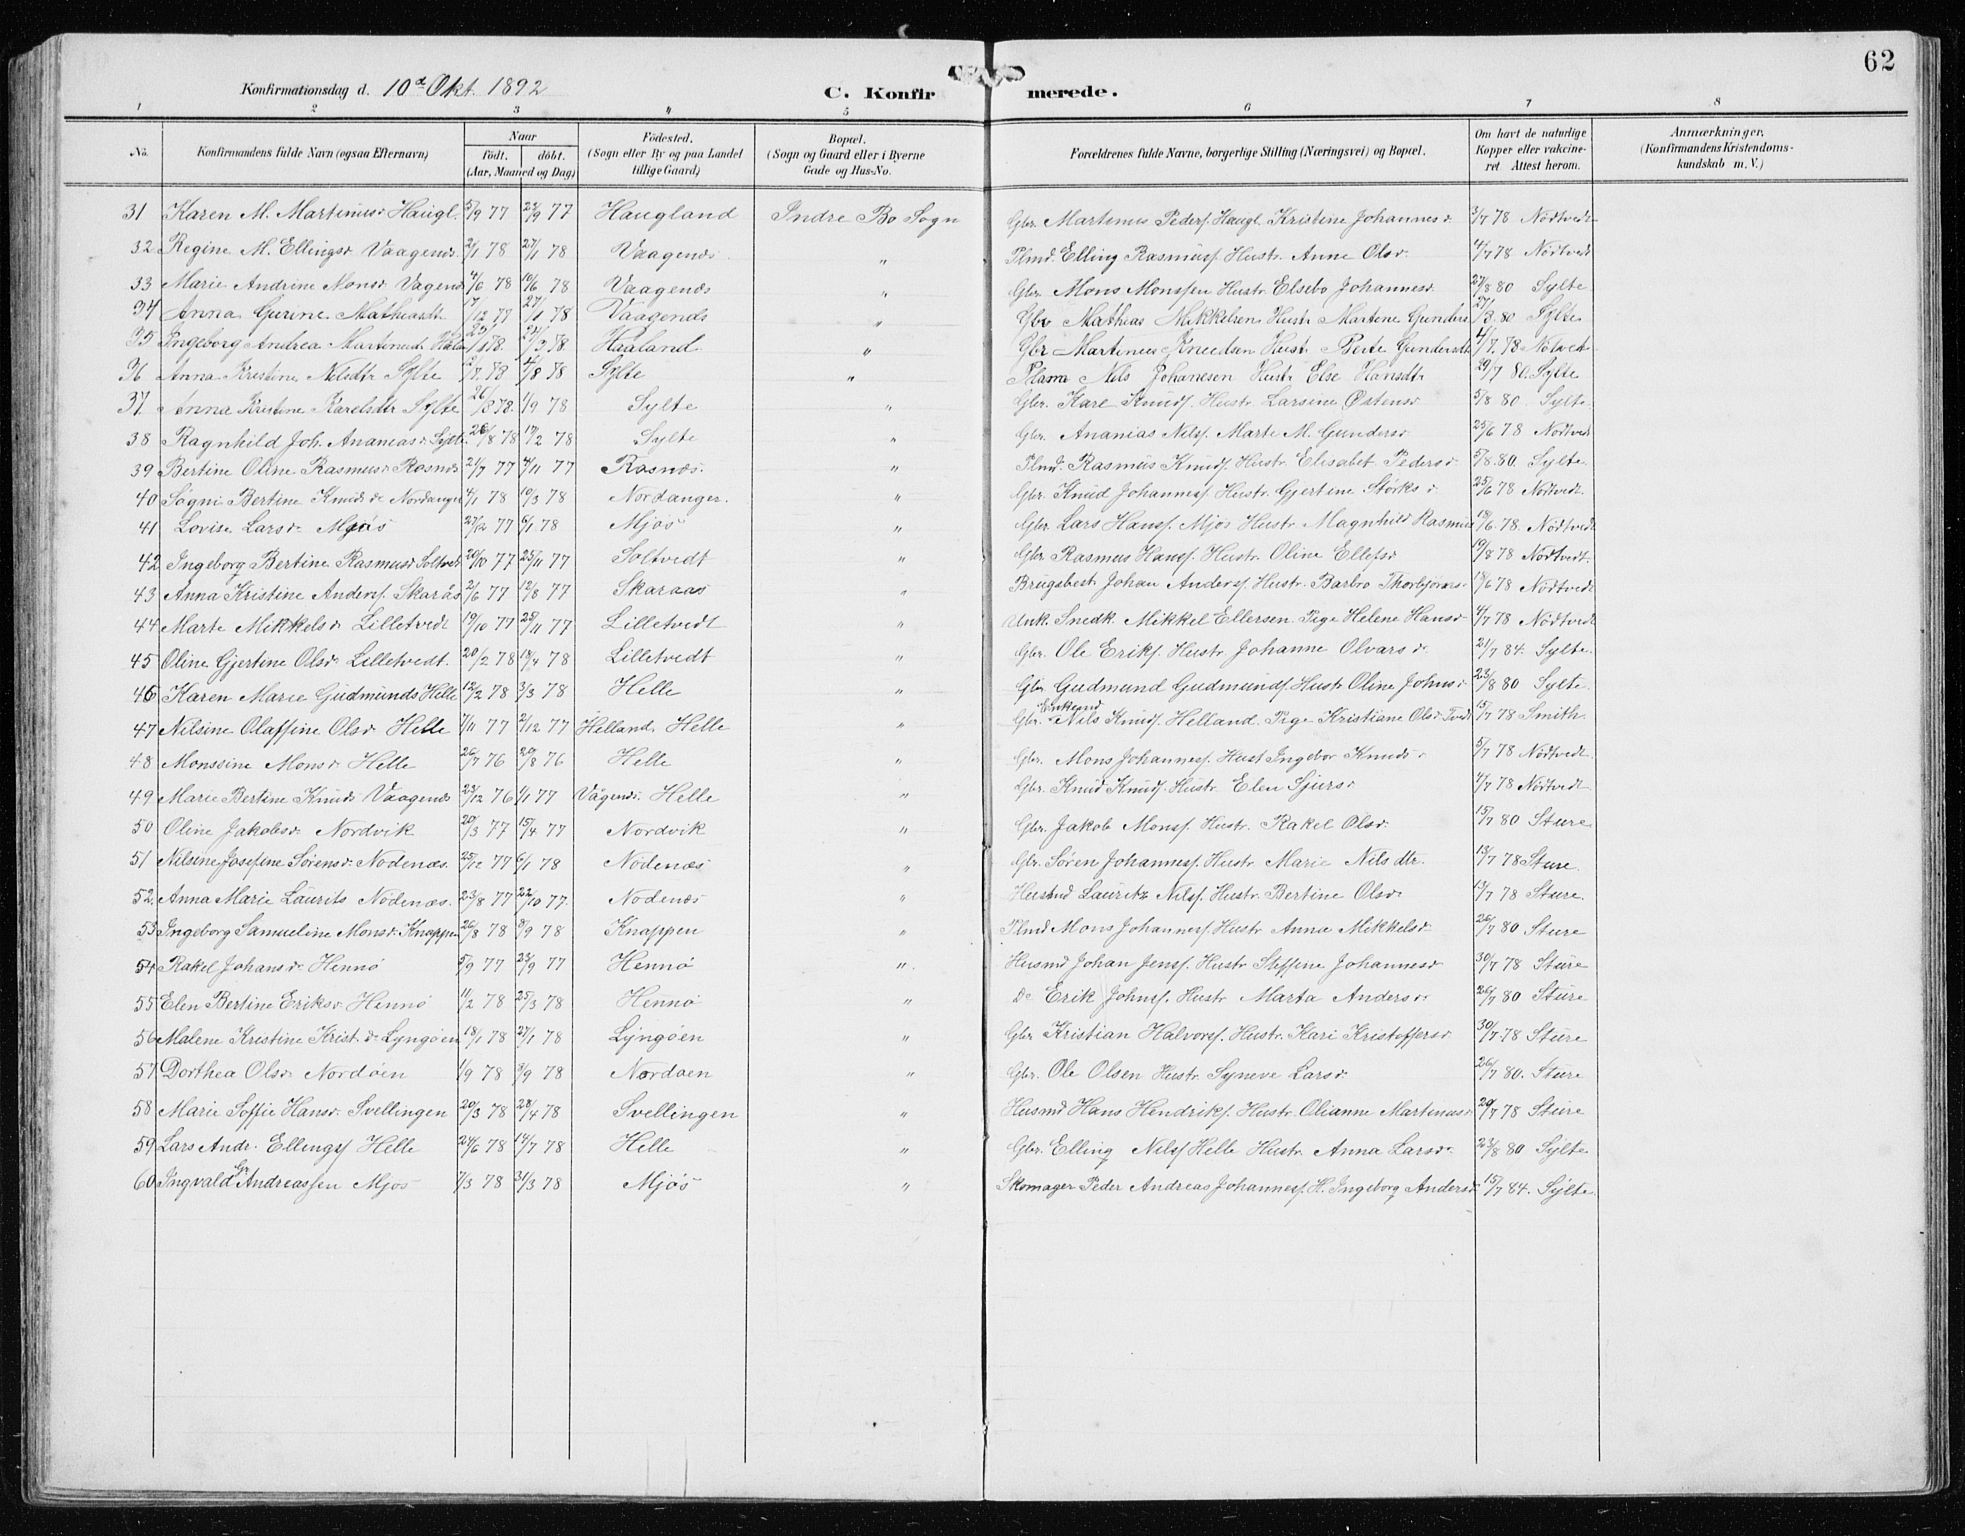 62
Konfirmationsdag d. 10de Okt. 1892
C. Konfirmerede.
1 2 3 4 5 6 7 8
No. Konfirmandens fulde Navn (ogsaa Efternavn) Naar födt. döbt. (Aar, Maaned og Dag) Födested. (Sogn eller By og paa Landet tillige Gaard) Bopæl. (Sogn og Gaard eller i Byerne Gade og Hus-No. Forældrenes fulde Navne, borgerlige Stilling (Næringsvei) og Bopæl. Om havt de naturlige Kopper eller vakcineret Attest herom. Anmærkninger. (Konfirmandens Kristendomskundskab m. V.)
31 Karen M. Martinusd. Haugl. 5/9 77 23/9 77 Haugland Indre Bo Sogn Gbr. Martinus Peders. Haugl. Kristine Johannesd 3/7 78 Nödtvedt
32 Regine M. Ellingsd Vaagenes 2/1 78 27/1 78 Vaagenes " Plmd. Elling Rasmuss. Hustr. Anne Olsd. 4/7 78 Nödtvedt
33 Marie Andrine Monsd Vagenes 4/6 78 10/6 78 Vaagenes " Gbr Mons Monssen Hustr. Elsebo Johannesd. 27/8 80 Sylte
34 Anna Gurine Mathiasdt 17/12 77 27/1 78 Vaagenes " Gbr Mathias Mikkelsen Hustr Martene Gundersd 27/8 80 Sylte
35 Ingeborg Andrea Martinusd 78. 24/3 78 Haaland " Gbr Martinus Knudsen Hust Berte Gundersdt 4/7. 78 Nötvedt
36 Anna Kristine Nilsdtr Sylte 2/7 78 4/8 78 Sylte " Plasm Nils Johanesen Hustr Else Hansdtr 29/7 80. Sylte
37 Anna Kristine Karelsdtr Sylte 26/8 78. 1/9 78 Sylte " Gbr. Karl Knuds. Hustr. Larsine Østensd 5/8 80 Sylte
38 Ragnhild Joh. Ananiasd. Sylte. 26/8 78 78 Sylte " Gbr. Ananias Nils. Marte M. Gundersd 25/6 78 Nödtvedt
39 Bertine Oline Rasmusd. Rosnes 21/7 77 4/11 77 Rosnæs. " Plmd. Rasmus Knuds. Hustr. Elisabet Pedersd. 5/8. 80. Sylte
40 Søgni Bertine Knudsd. Nordanger 4/1 78 10/3 78 Nordanger. " Gbr. Knud Johanness. Hustr. Gjertine Størksd 25/6 78 Nödtvedt
41 Lovise Larsd. Mjös 27/12 77 6/1 78 Mjös " Gbr. Lars Hans. Mjös Hustr. Magnhild Rasmus 18/6. 78. Nödtvedt
42 Ingeborg Bertine Rasmusd Soltvedt 20/10 77 25/11 77 Soltvedt " Gbr. Rasmus Hans. Hustr. Oline Ellefsd 19/8 78 Nödtvedt.
43 Anna Kristine Anders. Skarås 21/6 77 12/8 77 Skaraas " Brugsbest. Johan Anders. Hustr. Barbro Thorbjørns. 18/6 78 Nödtvedt
44 Marte Mikkelsd. Lilletvedt 19/10 77 25/11 77 Lilletvedt " Unk. Snedk. Mikkel Ellersen. Pige Helene Hansd 4/7 78 Nödtvedt
45 Oline Gjertine Olsd. Lilletvedt. 20/2 78 14/4 78 Lilletvedt " Gbr. Ole Eriks. Hustr. Johanne Olvarsd. 21/7 84. Sylte
46 Karen Marie Gudmunds Helle 12/2 78 3/3 78 Helle " Gbr. Gudmund Gudmunds. Hustr Oline Johnsd 23/8 80 Sylte
47 Nilsine Olaffine Olsd. Helle 7/11 77 2/12 77 Helland. Helle " Gbr. Enkemd Nils Knuds. Helland. Pige Kristiane Olsd. Tvedt 15/7 78 Smith.
48 Monssine Monsd. Helle 26/7 76 20/8 76 Helle " Gbr. Mons Johanness. Hust Ingebor Knudsd 5/7 78 Nödtvedt
49 Marie Bertine Knuds Vaagenes 23/12 76 1/1 77 Vågenes. Helle " Gbr. Knud Knuds. Hustr. Elen Sjursd 4/7 78 Nödtvedt
50 Oline Jakobsd. Nordvik 20/3 77 15/4 77 Nordvik " Gbr. Jakob Mons. Hustr. Rakel Olsd. 15/7 80 Sture
51 Nilsine Josefine Sørensd. Nodenæs. 25/12 77 6/1 78 Nodenæs " Gbr. Sören Johanness. Hustr. Marie Nilsdtr. 13/7 78 Sture
52 Anna Marie Laurits Nodenæs. 23/8 77 22/10 77. Nodenæs " Husmd Lauritz Nils. Hustr. Bertine Olsd. 13/7 78 Sture.
53 Ingeborg Samueline Monsd. Knappen 26/8 78 8/9 78 Knappen " Plmd Mons Johanness. Hustr Anna Mikkelsd. 26/7 80 Sture
54 Rakel Johansd. Hennö 5/9 77 23/9 77 Hennö " Husmd Johan Jens. Hustr Steffine Johannesd 30/7 78 Sture
55 Elen Bertine Eriksd. Hennö 11/2 78 25/3 78 Hennö " Do Erik Johns. Hustr Marta Andersd. 26/7 80 Sture
56 Malene Kristine Krist.d. Lyngöen 18/1 78 27/1 78 Lyngöen " Gbr. Kristian Halvors. Hustr. Kari Kristoffersd. 30/7 78 Sture
57 Dorthea Olsd. Nordöen 1/9 78 8/9 78 Nordöen " Gbr. Ole Olsen Hustr Syneve Larsd. 26/7 80. Sture
58 Marie Soffie Hansd. Svellingen 20/3 78 28/4 78 Svellingen " Husmd Hans Hendriks. Hustr. Olianne Martinusd 29/7 78 Sture
59 Lars Andr. Ellings. Helle 24/6 78 14/7 78 Helle " Gbr. Elling Nils. Helle Hustr. Anna Larsd. 23/8 80 Sylte
60 Ingvald Gr. Andreassen Mjøs 7/3 78 31/3 78 Mjös " Skomager Peder Andreas Johanness. H. Ingeborg Andersd. 15/7 84. Sylte.